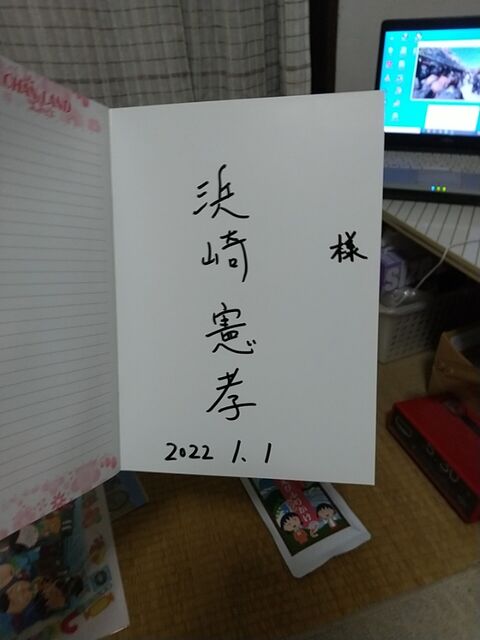 様
浜崎憲孝
2022 1.1